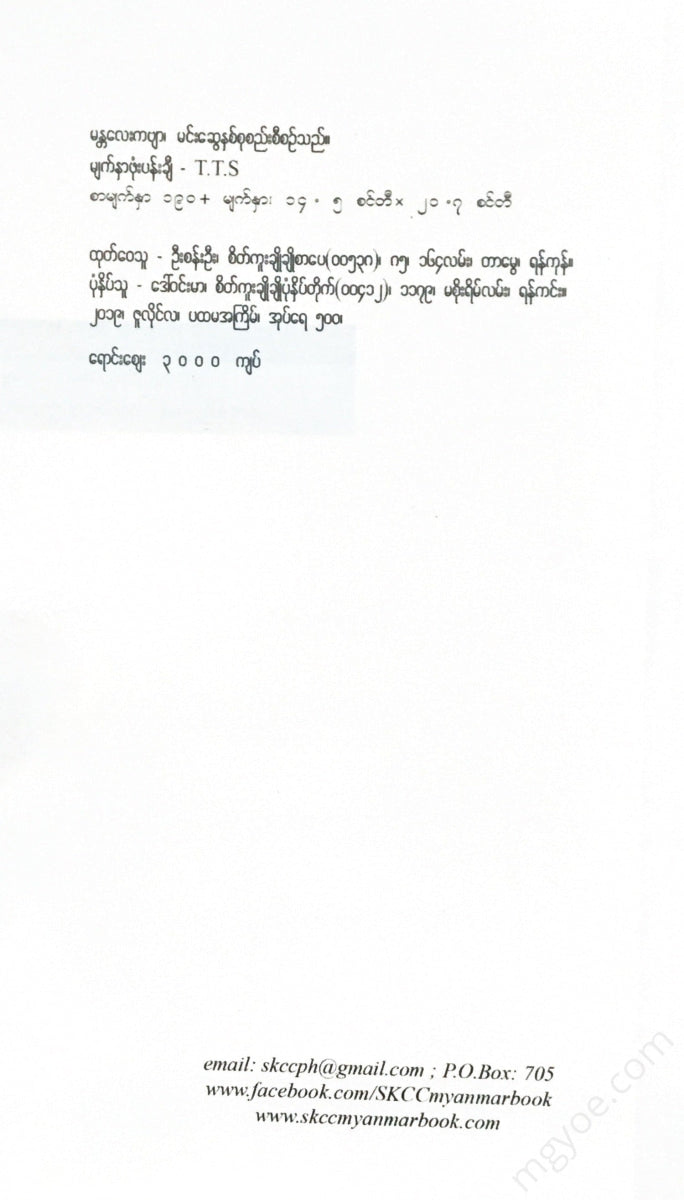 မန္တလေးကဗျာ၊ မင်းဆွေနှစ်စုစည်းစီစဉ်သည်။
မျက်နှာဖုံးပန်းချီ - T.T.S
စာမျက်နှာ ၁၉၀ + မျက်နှား ၁၄ . ၅ စင်တီ × ၂၁ .၇ စင်တီ
ထုတ်ဝေသူ - ဦးစန်းဦး၊ စိတ်ကူးချိုချိုစာပေ(၀၀၅၃၈)၊ ၈၅၊ ၁၆၄လမ်း၊ တာမွေ၊ ရန်ကုန်။
ပုံနှိပ်သူ - ဒေါ်ဝင်းမာ၊ စိတ်ကူးချိုချိုပုံနှိပ်တိုက်(၀၀၄၁၂)၊ ၁၁၇၉၊ မစိုးရိမ်လမ်း၊ ရန်ကင်း။
၂၀၁၉၊ ဇူလိုင်လ၊ ပထမအကြိမ်၊ အုပ်ရေ ၅၀၀၊
ရောင်းဈေး ၃ ၀ ၀ ၀ ကျပ်
email: skccph@gmail.com ; P.O.Box: 705
www.facebook.com/SKCCmyanmarbook
www.skccmyanmarbook.com
mgyoe.com